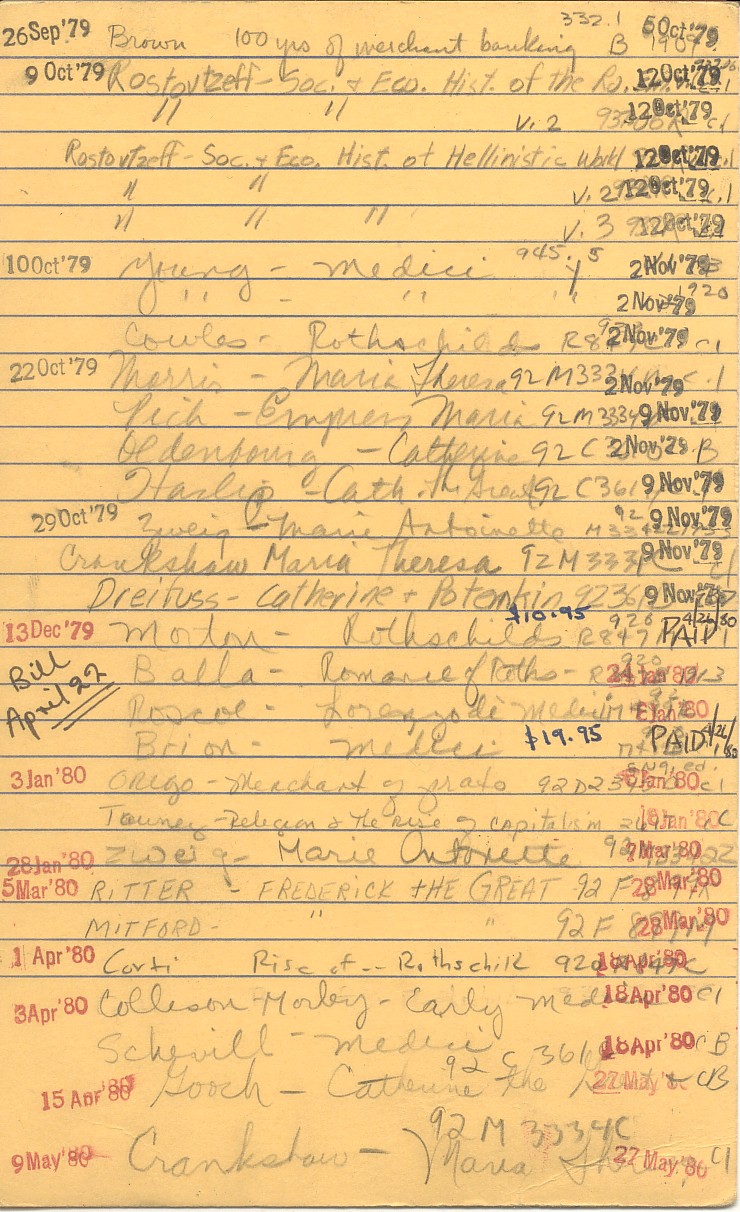 26 Sep '79 Brown 100 yrs of merchant banking 332.1 B 5 Oct '79
9 Oct '79 Rostovtzeff - Soc. & Eco. Hist. of the 12 Oct '79
" " v. 2 12 Oct '79 c1
Rostovtzeff - Soc. & Eco. Hist of Hellinistic World 12 Oct '79 c.1
" " v. 2 12 Oct '79 c.1
" " " v. 3 12 Oct '79
10 Oct '79 Young - Medici 945.5 2 Nov '79
" - " " 2 Nov '79
Cowles - Rothschilds 2 Nov '79 c1
22 Oct '79 Morris - Maria Theresa 92 M333 2 Nov '79 c.1
Pick - Empress Maria 92 M3334 9 Nov '79
Oldenbourg - Catherine 92 C 2 Nov '79 B
Haslip - Cath. The Great 92 C361 9 Nov '79
29 Oct '79 Zweig - Marie Antoinette 92 9 Nov '79
Crankshaw Maria Theresa 92 M333 9 Nov '79
Dreifuss - Catherine & Potemkin 9 Nov '79
$10.95 4/26/80
13 Dec '79 Morton - Rothschilds 920 R847 PAID
Bill Balla - Romance of Roths - 920 24 Jan '80
April 22 Roscoe - Lorenzo de Medici 92 Jan '80
Brion - Medici $19.95 PAID 4/26/80
3 Jan '80 Origo - Merchant of prato 92 D23 Eng. ed. Jan '80 c1
Tawney - Religion & the rise of capitalism 18 Jan '80 C
28 Jan '80 Zweig - Marie Antoinette 92 7 Mar '80
5 Mar '80 RITTER - FREDERICK THE GREAT 92 F 28 Mar '80
MITFORD - " " 92 F 28 Mar '80
1 Apr '80 Corti Rise of -- Rothschild 920 18 Apr '80
3 Apr '80 Colleson-Morley - Early Medici 18 Apr '80 c1
Schevill - Medici 18 Apr '80 c B
15 Apr '80 Gooch - Catherine the Great 92 C 361 27 May '80 cB
92 M 3334C
9 May '80 Crankshaw - Maria 27 May '80 c1